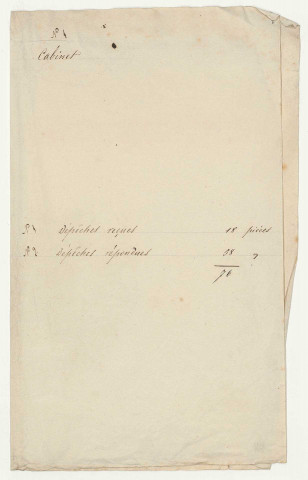 Cabinet
Dépêches reçues 18 pièces
Dépêches répondues 58 "
76